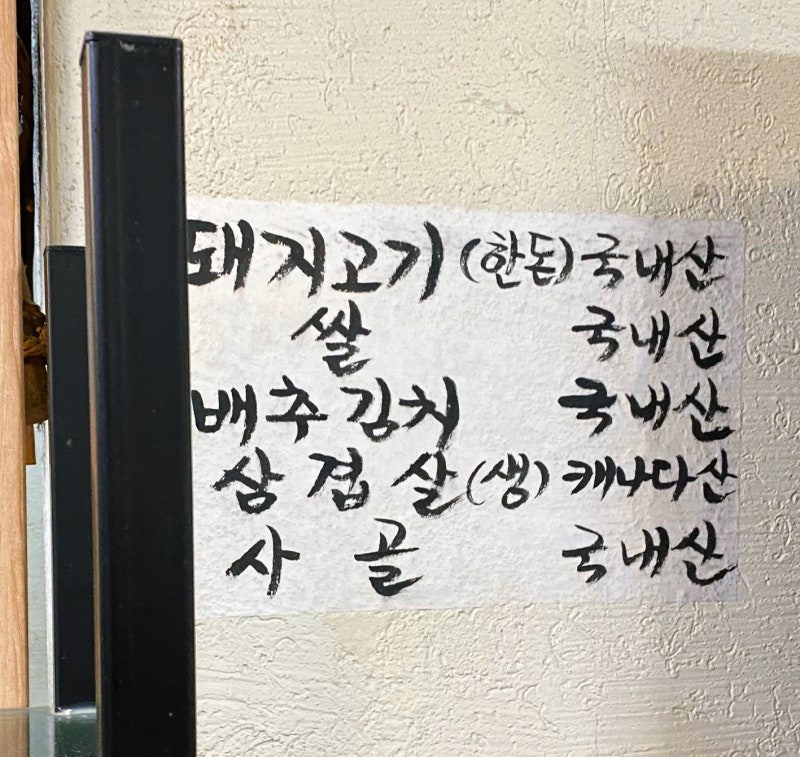 돼지고기 (한돈) 국내산
쌀 국내산
배추김치 국내산
삼겹살 (생) 캐나다산
사골 국내산